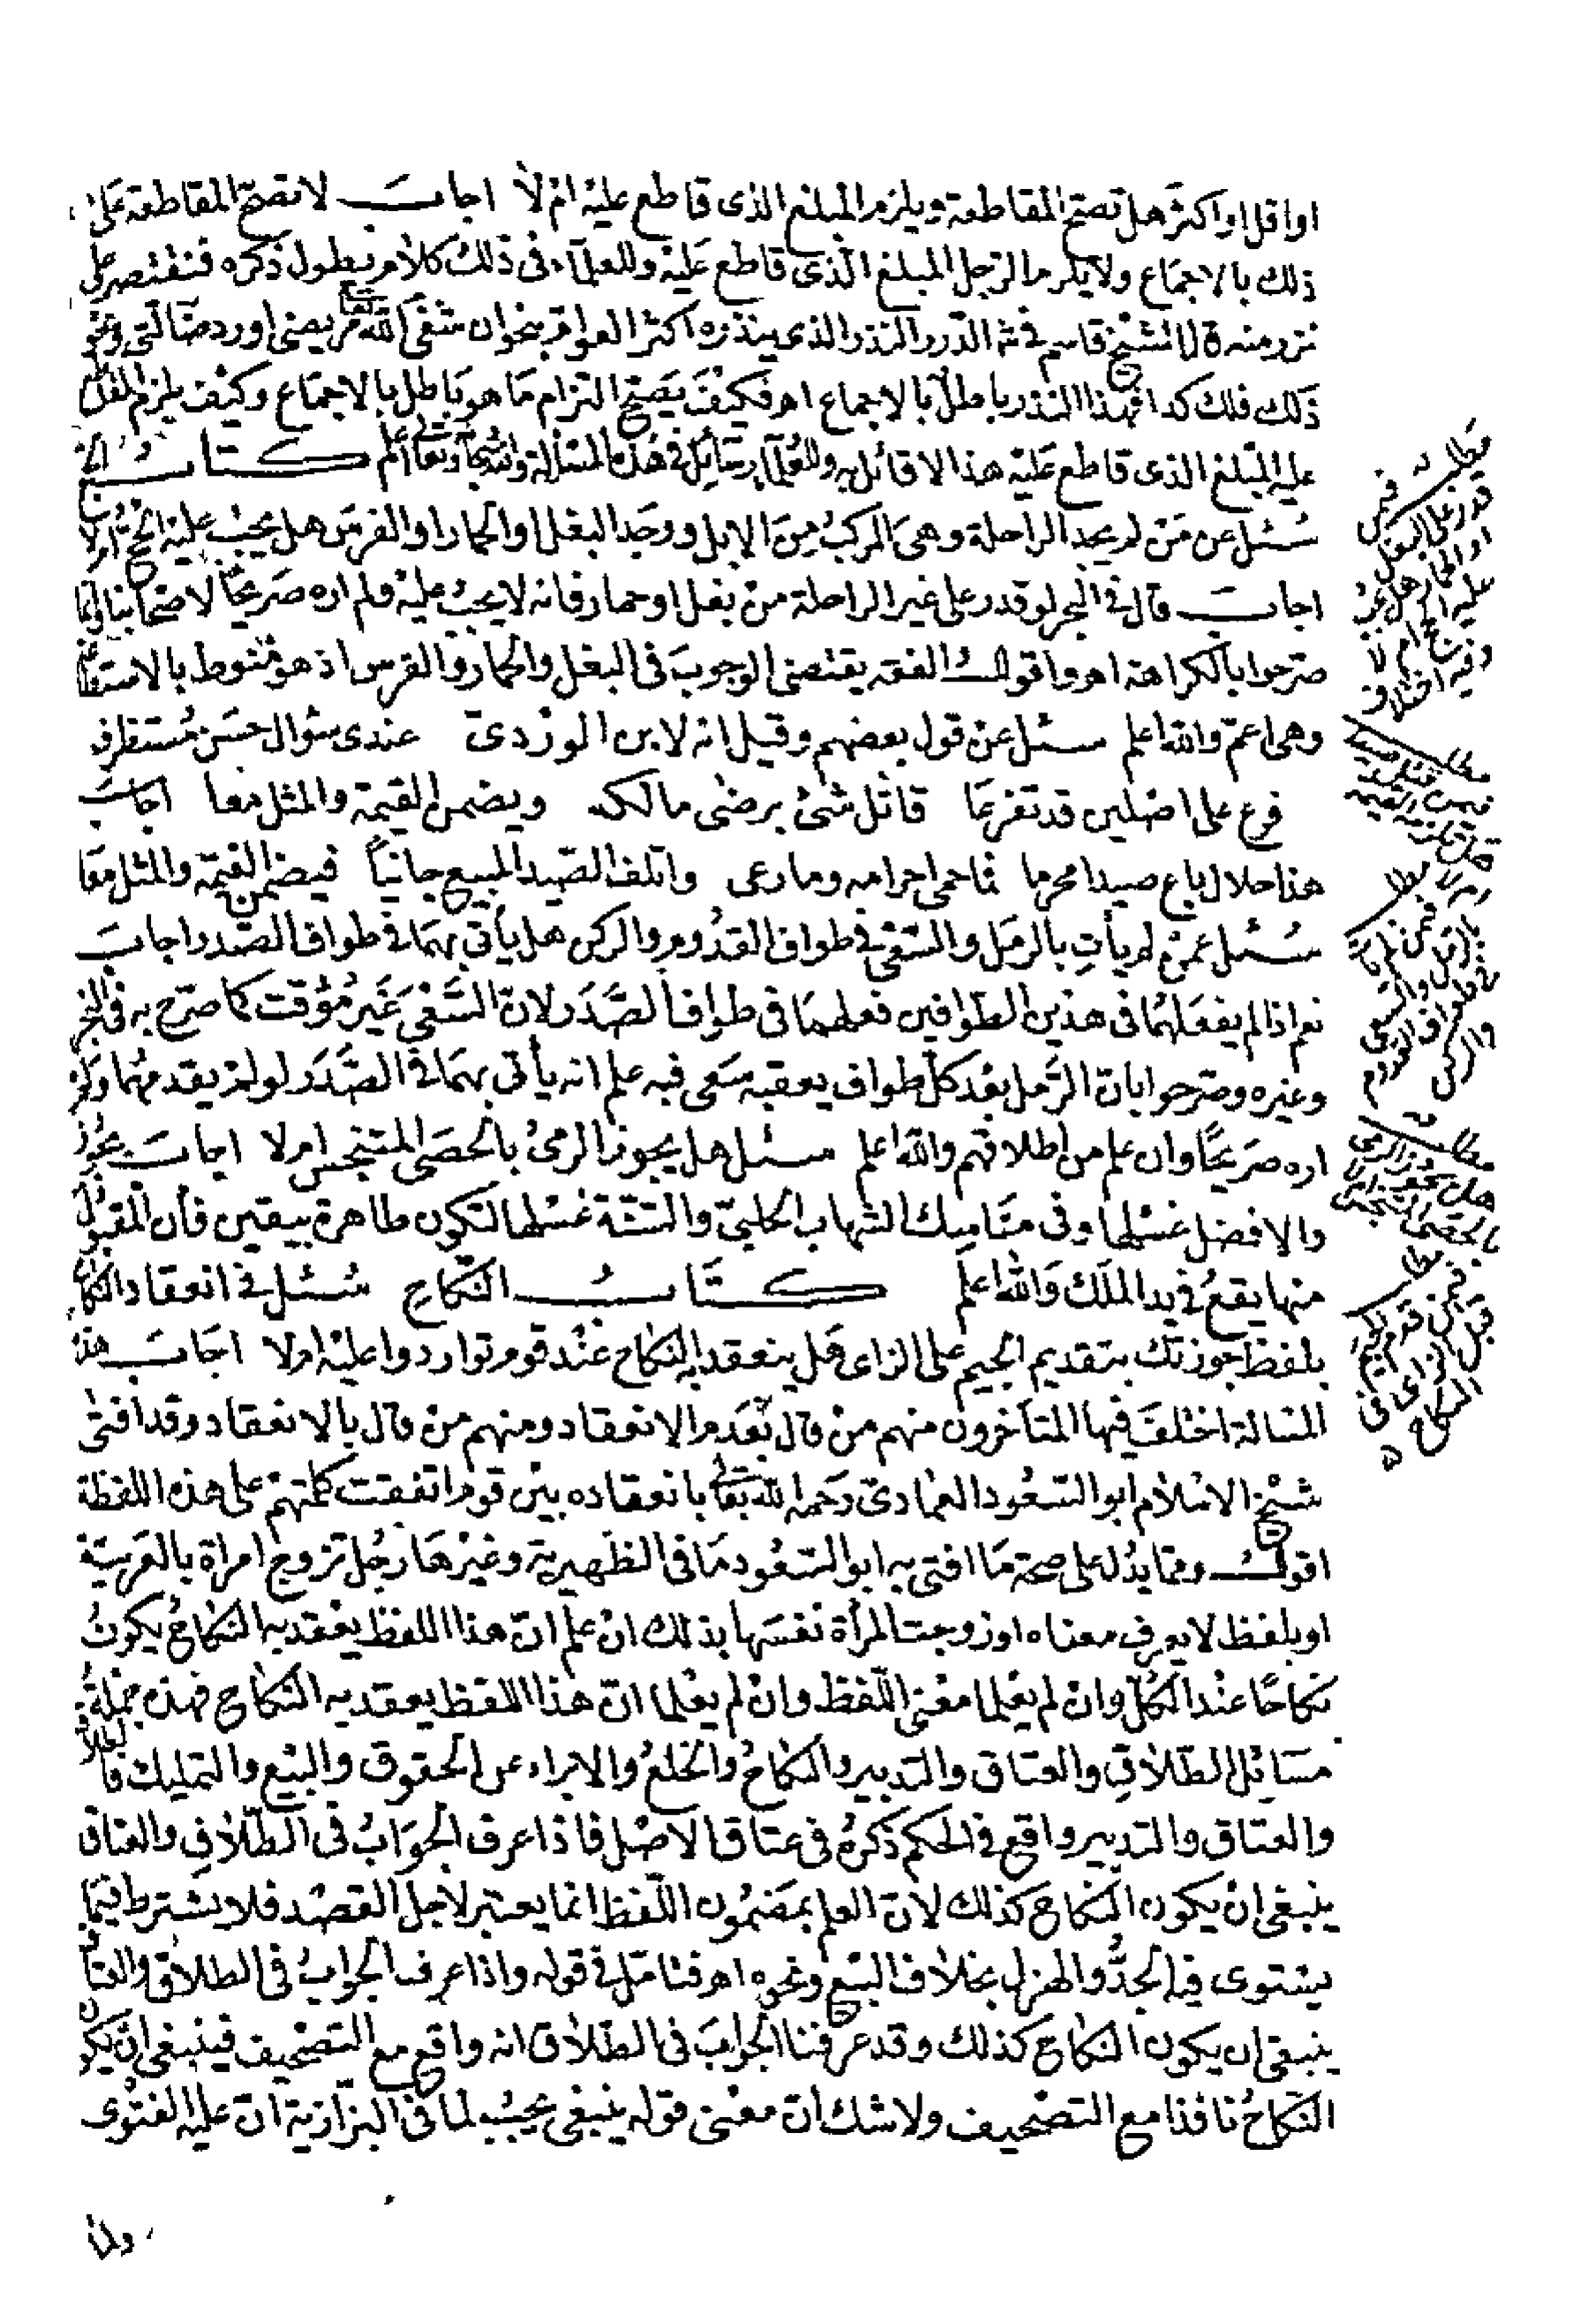 او اقل او اكثر هل تصح المقاطعة ويلزم المبلغ الذى قاطع عليه ام لا اجاب لا تصح المقاطعة على
ذلك بالاجماع ولا يلزم الرجل المبلغ الذى قاطع عليه وللعلماء فى ذلك كلام يطول ذكره فنقتصر على
نزر منه قال الشيخ قاسم فى شرح الدرر النذر الذى ينذره اكثر العوام بنحو ان شفى الله تعالى مريضى او رد ضالتى ونحو
ذلك فلك كذا فهذا النذر باطل بالاجماع اهـ فكيف يصح التزام ما هو باطل بالاجماع وكيف يلزم المقاطع
عليه المبلغ الذى قاطع عليه هذا لا قائل به وللعلماء رسائل فى هذه المسئلة والله سبحانه وتعالى اعلم كتاب الحج
سئل عن من لم يجد الراحلة وهى المركب من الابل ووجد البغل او الحمار او الفرس هل يجب عليه الحج ام لا
اجاب قال فى البحر لو قدر على غير الراحلة من بغل او حمار فانه لا يجب عليه ولم اره صريحا لاصحابنا وانما
صرحوا بالكراهة اهـ واقول الفقه يقتضى الوجوب فى البغل والحمار والفرس اذ هو منوط بالاستطاعة
وهى اعم والله اعلم سئل عن قول بعضهم وقيل انه لابن الوردى عندى سؤال حسن مستظرف
فرع على اصلين قد تفرعا قاتل شئ برضى مالكه ويضمن القيمة والمثل معا اجاب
هذا حلال باع صيدا محرما فما حمى احرامه وما رعى واتلف الصيد المبيع جانيا فيضمن القيمة والمثل معا
سئل عمن لم يأت بالرمل والسعى فى طواف القدوم والركن هل يأتى بهما فى طواف الصدر اجاب
نعم اذا لم يفعلهما فى هذين الطوافين فعلهما فى طواف الصدر لان السعى غير مؤقت كما صرح به فى البحر
وغيره وصرحوا بان الرمل بعد كل طواف يعقبه سعى فبه علم انه يأتى بهما فى الصدر لو لم يقدمهما ولم
اره صريحا وان علم من اطلاقهم والله اعلم سئل هل يجوز الرمى بالحصى المتنجس ام لا اجاب يجوز
والافضل غسلها وفى مناسك الشهاب الحلبى والسنة غسلها لتكون طاهرة بيقين فان المقبول
منها يقع فى يد الملك والله اعلم كتاب النكاح سئل فى انعقاد النكاح
بلفظ جوزتك بتقديم الجيم على الزاى هل ينعقد به النكاح عند قوم تواردوا عليه ام لا اجاب هذه
المسالة اختلف فيها المتأخرون منهم من قال بعدم الانعقاد ومنهم من قال بالانعقاد وقد افتى
شيخ الاسلام ابو السعود العمادى رحمه الله تعالى بانعقاده بين قوم اتفقت كلمتهم على هذه اللفظة
اقول ومما يدل على صحة ما افتى به ابو السعود ما فى الظهيرية وغيرها رجل تزوج امراة بالعربية
او بلفظ لا يعرف معناه او زوجت المرأة نفسها بذلك ان علم ان هذا اللفظ يعقد به النكاح يكون
نكاحا عند الكل وان لم يعلما معنى اللفظ وان لم يعلما ان هذا اللفظ يعقد به النكاح فهذه جملة
مسائل الطلاق والعتاق والتدبير والنكاح والخلع والابراء عن الحقوق والبيع والتمليك فالطلاق
والعتاق والتدبير واقع فى الحكم ذكره فى عتاق الاصل فاذا عرف الجواب فى الطلاق والعتاق
ينبغى ان يكون النكاح كذلك لان العلم بمضمون اللفظ انما يعتبر لاجل القصد فلا يشترط فيما
يستوى فيه الجد والهزل بخلاف البيع ونحوه اهـ فتامل فى قوله واذا عرف الجواب فى الطلاق والعتاق
ينبغى ان يكون النكاح كذلك وقد عرفنا الجواب فى الطلاق انه واقع مع التصحيف فينبغى ان يكون
النكاح نافذا مع التصحيف ولا شك ان معنى قوله ينبغى يجب لما فى البزازية ان عليه الفتوى
مطلب فيمن
قدر على البغل
او الحمار هل يجب
عليه الحج ام لا
وفيه اختلاف
مطلب
مطلب
فيمن لم يأت
بالرمل والسعى
فى طواف القدوم
والركن
مطلب
هل يجوز الرمى
بالحصى المتنجس
مطلب
فيمن قدم الجيم
قبل الزاى فى
النكاح